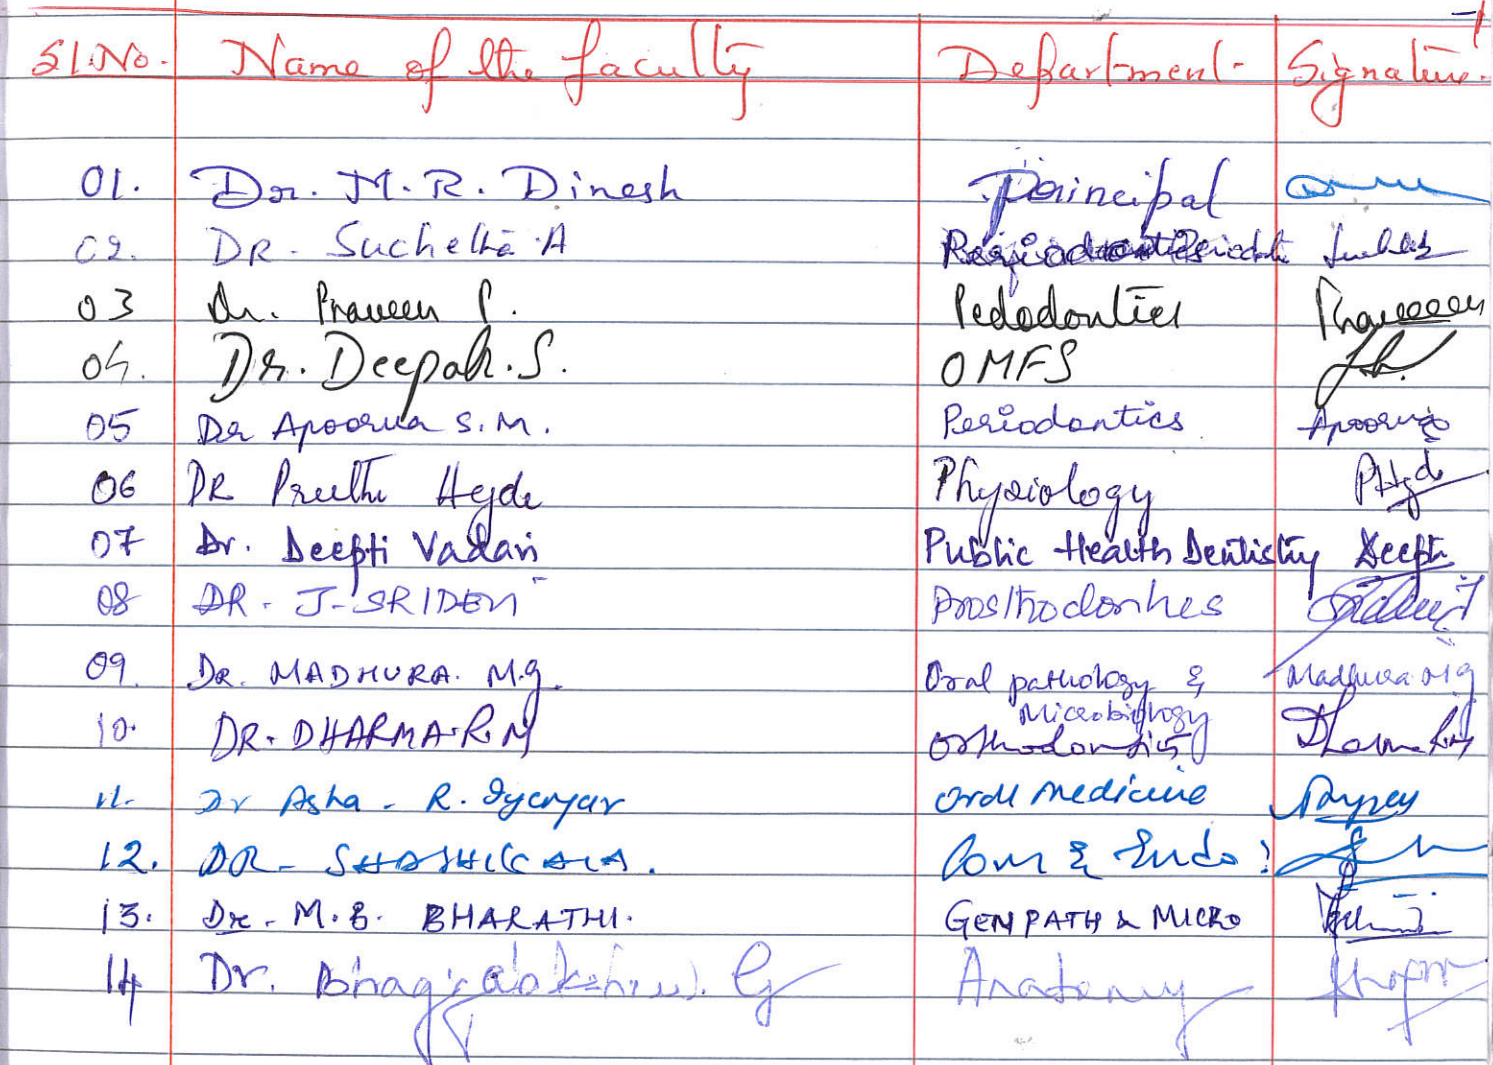 Sl.No. Name of the faculty Department Signature
01. Dr. M.R. Dinesh Principal
02. DR. Suchetha A Periodontics
03 Dr. Praveen P. Pedodontics Praveen
04. Dr. Deepak.S. OMFS
05 Dr Apoorva S.M. Periodontics Apoorva
06 DR Preethi Hegde Physiology PHgde
07 Dr. Deepti Vadavi Public Health Dentistry Deepti
08 DR. J. SRIDEVI Prosthodontics
09. Dr. MADHURA. M.G. Oral pathology & Madhura MG
Microbiology
10. DR. DHARMA.R.M Orthodontics Dharma RM
11. Dr Asha - R. Iyengar Oral medicine
12. DR - SHASHIKALA. Con & Endo
13. Dr. M.B. BHARATHI. GEN PATH & MICRO
14 Dr. G Anatomy